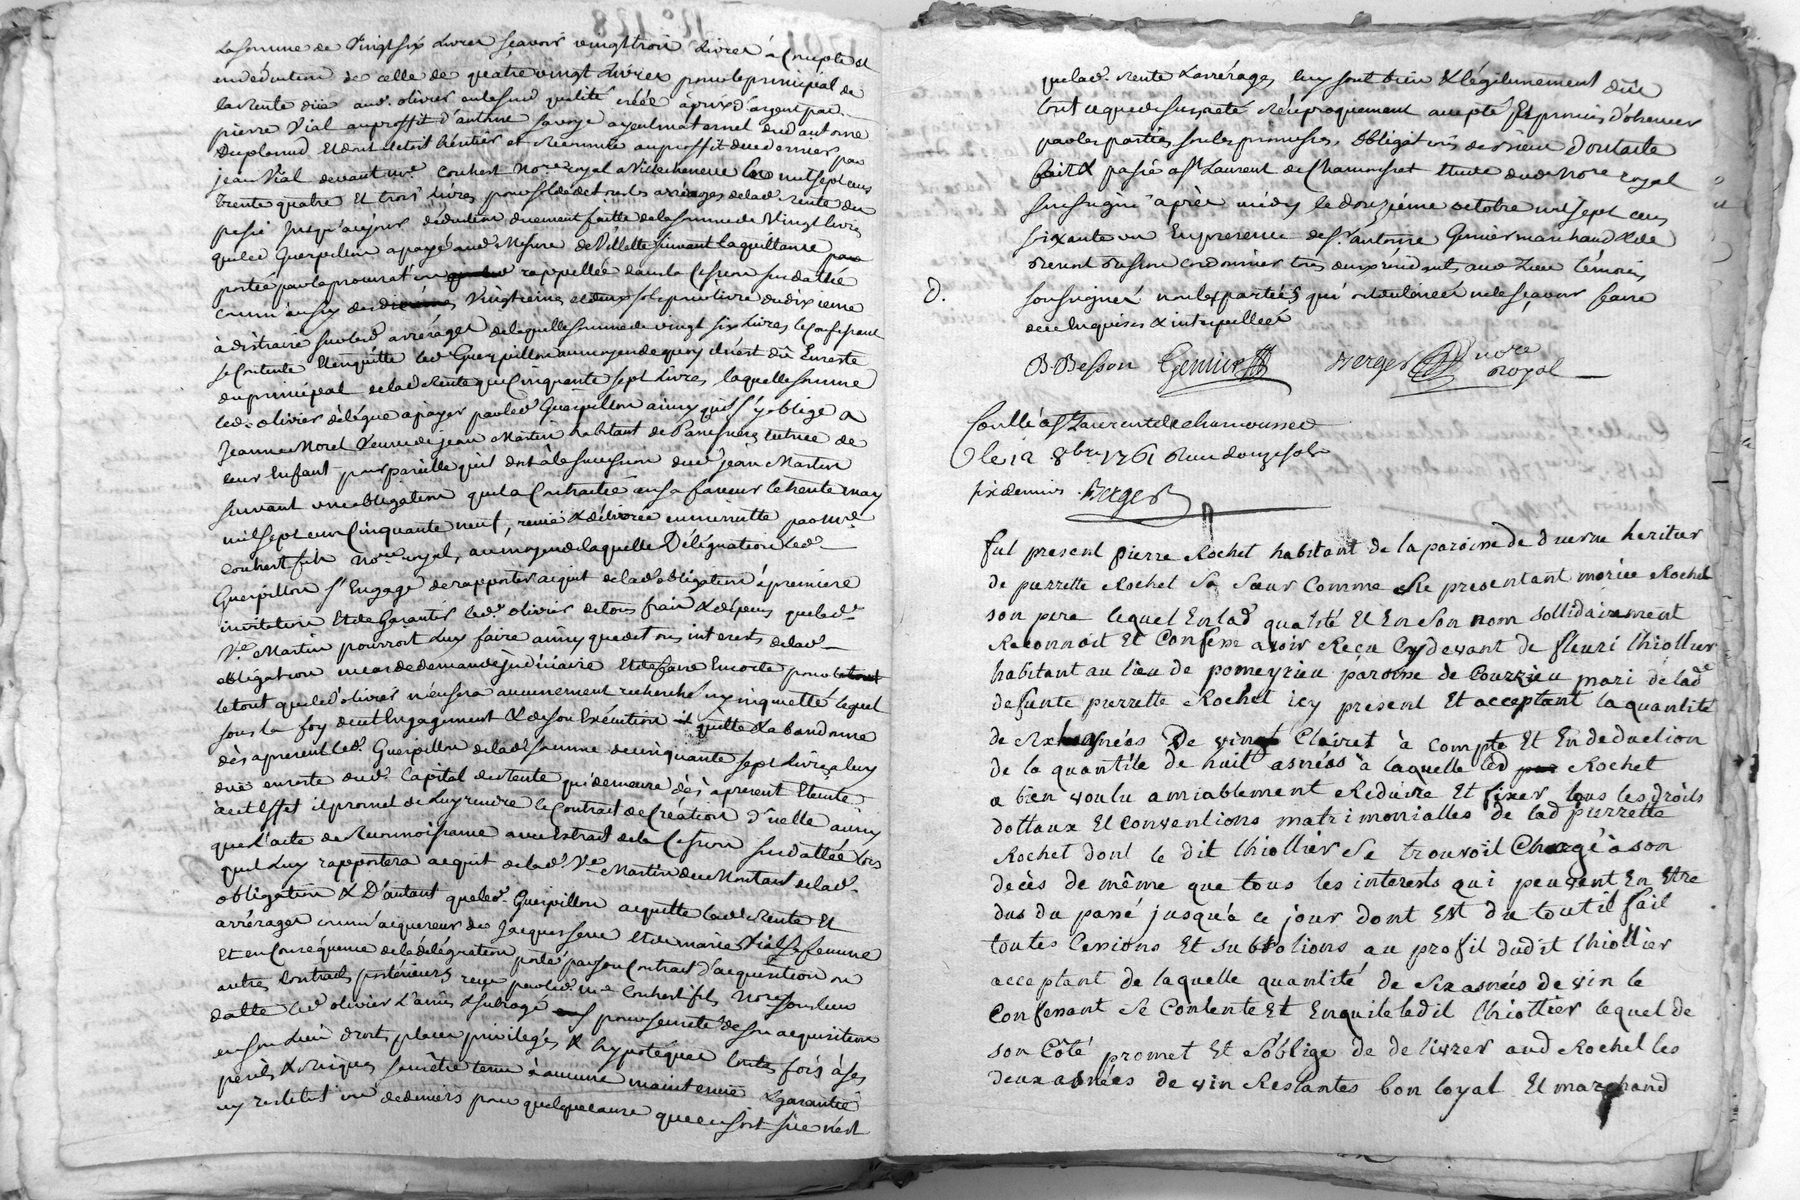 La somme de Vingt six Livres scavoir vingt trois Livres à Compte et
en deduction de celle de quatre vingt Livres pour le principal de
la Rente düe aud. olivier en lesusd qualité créée à prix d'argent par
pierre Vial au proffit d'antoine savoye ayeul maternel dud antoine
Duplomd Et dont il etoit héritier et Reconnüe au proffit du dernier par
jean Vial devant me. Couhert Nore. royal a Villecheneve Le mil sept cens
trente quatre Et trois Livres pour solde de tous les arrérages de lad. rente du
passé jusqu'aujour déduction duement faitte de la somme de Vingt livres
que led Guerpillon a payé aud Mesure de Villette suivant la quittance
portée par la procuration rappellée dans la Cession susdattée
comm' aussy des Vingtiemes et deux sols pour livre du dixieme
à distraire sur lesd arrérages de laquelle somme de vingt six Livres le Confessant
se Contente Et en quitte led Guerpillon au moyen de quoy il n'est dû En reste
du principal de lad Rente que Cinquante sept Livres, laquelle somme
led. olivier délégue a payer par led Guerpillon ainsy qu'il s'y oblige a
Jeanne Morel Veuve de jean Martin habitant de tutrice de
leur Enfant pour pareille qu'il doit à la succession dud jean Martin
suivant une obligation qu'il a Contractée en sa faveur le trente may
mil sept cens Cinquante neuf, reçüe & délivrée en minutte par Me.
Couhert fils Nore royal, au moyen de laquelle Délégation led.
Guerpillon s'Engage de rapporter aquit de lad obligation à premiere
invitation Et de Garantir led. olivier de tous frais & dépens que lad.
Ve. Martin pourroit Luy faire ainsy que de tous interets de lad.
obligation en cas de demande judiciaire Et de faire En sorte pour
le tout que led olivier n'en sera aucunement recherché ny inquietté lequel
sous la foy de cet Engagement & de son Exécution quitte & abandonne
dès apresent led. Guerpillon de lad somme de cinquante sept Livres a luy
düe en reste dud. Capital de Rente qui demeure dès à present Eteinte
à cet Effet il promet de Luy rendre le Contrat de Création d'icelle ainsy
que l'acte de Reconnoissance avec Extrait de la Cession susdattée lors
qu'il Luy rapportera acquit de lad. Ve. Martin du Montant de lad.
obligation & D'autant que led. Guerpillon acquitte lad Rente Et
arrérages comm'acquereur de Jacques serve Et de marie Vial sa femme
Et en Conséquence de la délégation porté par son Contrat d'acquisition ou
autres Contrats postérieurs reçus par led me Couhert fils Nore sous leur
datte led olivier L'a mis & subrogé pour seureté de son acquisition
en son Lieu droits, places privileges & hypoteques toutes fois à ses
perils & risques sans être tenu à aucune maintenüe & garantie
ny restitution de deniers pour quelque cause que ce soit si ce n'est
que lad. rente & arrérages luy sont bien & légitimement dûs
tout ce que dessus a eté réciproquement accepté Et promis d'observer
par les parties sous les promesses, Obligations
fait & passé a St Laurent de Chamousset Etude dud Nore royal
soussigné après midy le douzième octobre mil sept cens
soixante un En presence de sr. antoine Genier marchand & de
Benoit Besson cordonnier tous deux résidants aud Lieu témoins
D. soussignés non les parties qui ont declarées ne le sçavoir faire
de ce Enquises & interpellées
B. Besson Genier Berger nore
royal
Conllé a St Laurent de chamousset
le 12 8bre 1761 Reçu douze sols
six deniers. Berger
fut present pierre Rochet habitant de la paroisse de duerne heritier
de pierrette Rochet Sa Sœur Comme Re presentant Rochet
son pere lequel En lad qualité Et En Son nom sollidairement
Reconnoit Et Confesse avoir Reçu Cy devant de fleuri thiollier
habitant au lieu de pomeyrieu paroisse de Courzieu mari de lad
defunte pierrette Rochet icy present Et acceptant la quantité
de six asnées De vin Clairet à compte Et En deduction
de la quantité de huit asnées à laquelle led Rochet
a bien voulu amiablement Reduire Et fixer tous les droits
dottaux Et conventions matrimonialles de lad pierrette
Rochet dont le dit thiollier Se trouvoit Chargé à son
decès de même que tous les interests qui peuvent En Etre
dus du passé jusqu'à ce jour dont Est du tout il fait
toutes Cessions Et subrotions au profit dudit thiollier
acceptant de laquelle quantité de Six asnées de vin le
Confessant Se Contente Et En quite ledit thiollier lequel de
son Côté promet Et S'oblige de delivrer aud Rochet les
deux asnées de vin Restantes bon loyal Et marchand